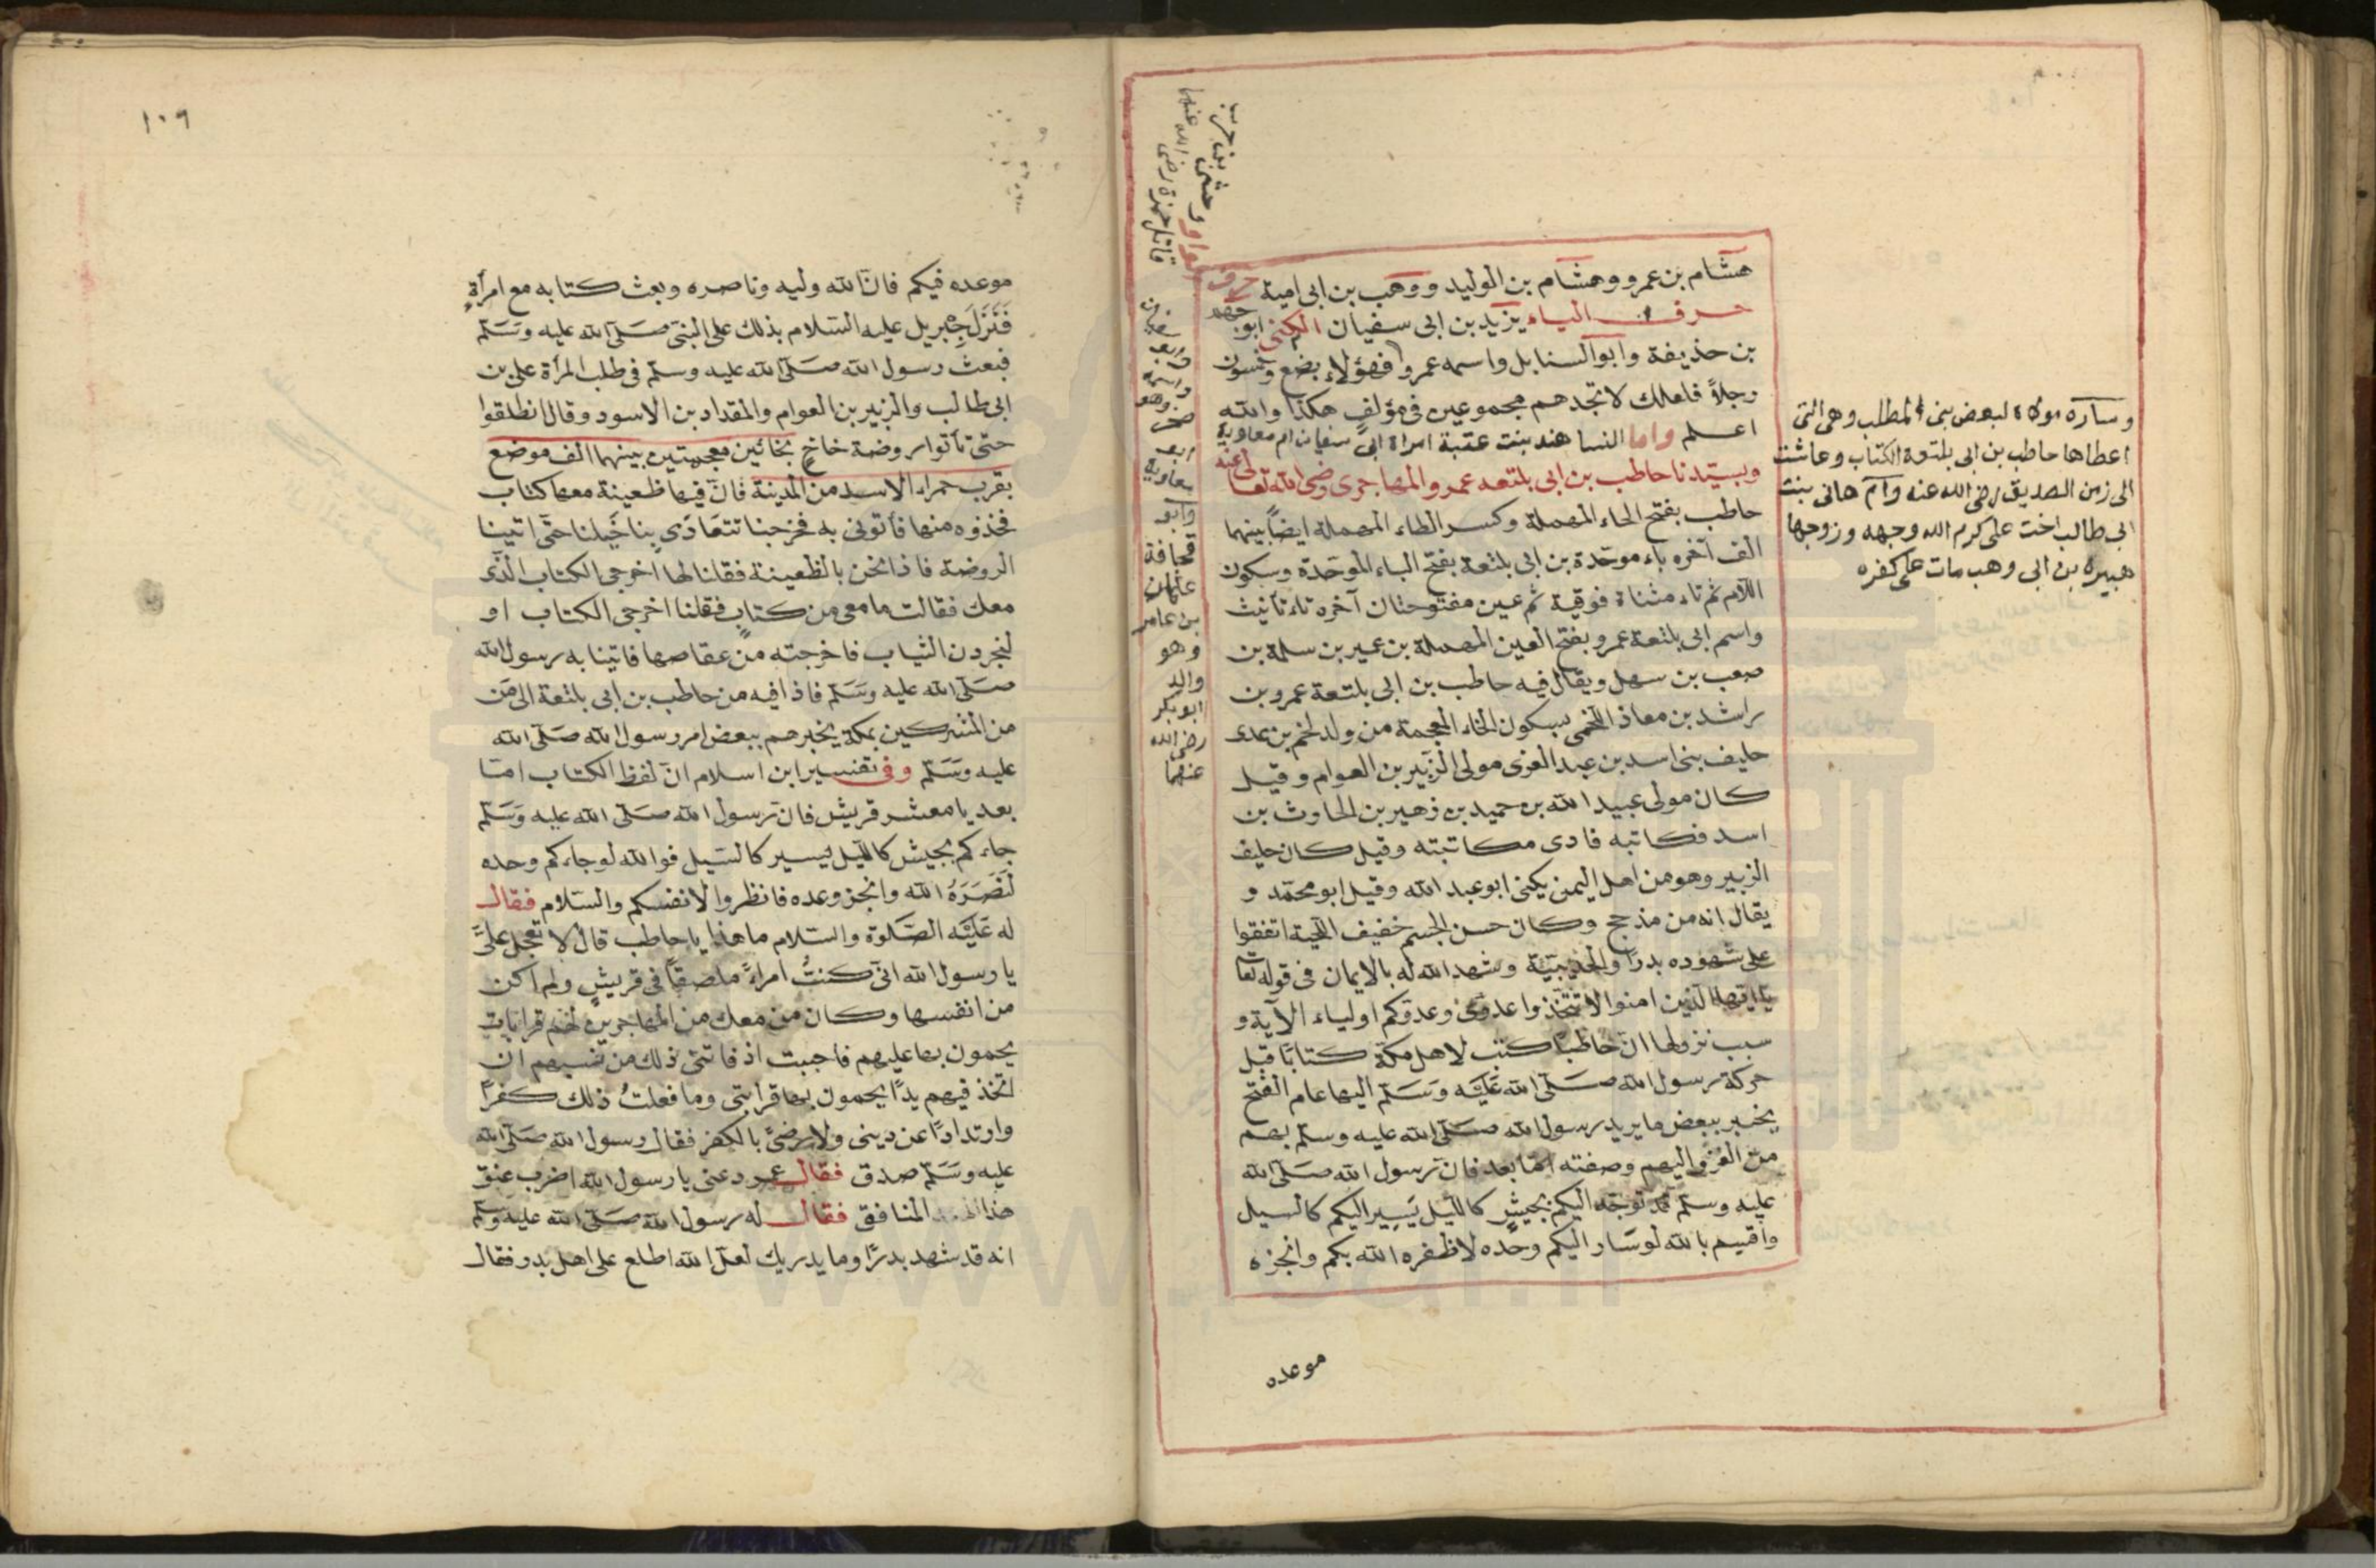 هشام بن عمرو وهشام بن الوليد ووهب بن ابى امية حرف
الواو وحشى بن حرب
قاتل حمزة رضى الله عنهما
حرف الياء يزيد بن ابى سفيان الكنى ابو جهم
بن حذيفة وابو السنابل واسمه عمرو فهؤلاء بضع وخمسون
رجلاً فلعلك لا تجدهم مجموعين فى مؤلف هكذا والله
اعلم واما النسا هند بنت عتبة امراة ابى سفيان ام معاوية
وبسيّدنا حاطب بن ابى بلتعه عمرو المهاجرى رضى الله تعالى عنه
حاطب بفتح الحاء المهملة وكسر الطاء المهملة ايضاً بينهما
الف آخره باء موحّدة بن ابى بلتعة بفتح الباء الموحّدة وسكون
اللام ثم تاء مثناة فوقية ثم عين مفتوحتان آخره تاء تأنيث
واسم ابى بلتعة عمرو بفتح العين المهملة بن عمير بن سلمة بن
صعب بن سهل ويقال فيه حاطب بن ابى بلتعة عمرو بن
راشد بن معاذ اللخمى بسكون الخاء المعجمة من ولد لخم بن عدى
حليف بنى اسد بن عبد العزى مولى الزبير بن العوام وقيل
كان مولى عبيد الله بن حميد بن زهير بن الحارث بن
اسد فكاتبه فادى مكاتبته وقيل كان حليف
الزبير وهو من اهل اليمن يكنى ابو عبد الله وقيل ابو محمّد و
يقال انه من مذحج وكان حسن الجسم خفيف اللحية اتفقوا
على شهوده بدرًا والحديبيّة وشهد الله له بالايمان فى قوله تعا
يا ايّها الّذين امنوا لا تتّخذوا عدوّى وعدوّكم اولياء الآية و
سبب نزولها انّ حاطبًا كتب لاهل مكّة كتابًا قبل
حركة رسول الله صَلّى الله عَلَيْه وَسَلّم اليها عام الفتح
يخبر ببعض ما يريد رسول الله صَلّى الله عليه وسلّم بهم
من الغزو اليهم وصفته امّا بعد فانّ رسول الله صَلّى الله
عليه وسلّم قد توجّه اليكم بجيشٍ كاللّيل يَسِير اليكم كالسيل
واقسم بالله لو سَار اليكم وحده لاظفره الله بكم وانجزه
موعده
وابو سفيان
واسمه
صخر وهو
ابو
معاوية
وابو
قحافة
عثمان
بن عامر
وهو
والد
ابو بكر
رضى الله
عنهما
وساره مولاة لبعض بنى المطلب وهى التى
اعطاها حاطب بن ابى بلتعة الكتاب وعاشت
الى زمن الصديق رضى الله عنه وام هانى بنت
ابى طالب اخت على كرم الله وجهه وزوجها
هبيرة بن ابى وهب مات على كفره
١٠٩
موعده فيكم فانّ الله وليه وناصره وبعث كتابه مع امرأةٍ
فَنَزَلَ جِبْريل عليه السّلام بذلك على النبىّ صَلّى الله عليه وَسَلّم
فبعث رسول الله صَلّى الله عليه وسلّم فى طلب المرأة على بن
ابى طالب والزبير بن العوام والمقداد بن الاسود وقال انطلقوا
حتى تأتوا روضة خاخ بخائين معجمتين بينهما الف موضع
بقرب حمراء الاسد من المدينة فانّ فيها ظعينة معها كتاب
فخذوه منها فأتونى به فخرجنا تتعَادَى بنا خَيلنا حتى اتينا
الروضة فاذا نحن بالظعينة فقلنا لها اخرجى الكتاب الّذى
معك فقالت ما معى من كتاب فقلنا اخرجى الكتاب او
لنجردن الثياب فاخرجته من عقاصها فاتينا به رسول الله
صَلّى الله عليه وَسَلّم فاذا فيه من حاطب بن ابى بلتعة الى مَن
من المشركين بمكة يخبرهم ببعض امر رسول الله صَلّى الله
عليه وَسَلّم وفى تفسير ابن اسلام انّ لفظ الكتاب امّا
بعد يا معشر قريش فانّ رسول الله صَلّى الله عليه وَسَلّم
جاءكم بجيش كاللّيل يسير كالسّيل فوالله لو جاءكم وحده
لَنَصَرَهُ الله وانجز وعده فانظروا لانفسكم والسّلام فقال
له عَلَيْه الصّلوة والسّلام ما هذا يا حاطب قال لا تعجل علىَّ
يا رسول الله انّى كنتُ امراءً ملصقًا فى قريشٍ ولم اكن
من انفسها وكان من معك من المهاجرين لهم قراباتٍ
يحمون بها عليهم فاحببت اذ فاتنى ذلك من نسبهم ان
اتخذ فيهم يدًا يحمون بها قرابتى وما فعلتُ ذلك كفرًا
وارتدادًا عن دينى ولا رضىً بالكفر فقال رسول الله صَلّى الله
عليه وَسَلّم صدق فقال عمر دعنى يا رسول الله اضرب عنق
هذا المنافق فقال له رسول الله صَلّى الله عليه وسلّم
انه قد شهد بدرًا وما يدريك لعلّ الله اطلع على اهل بدر فقال